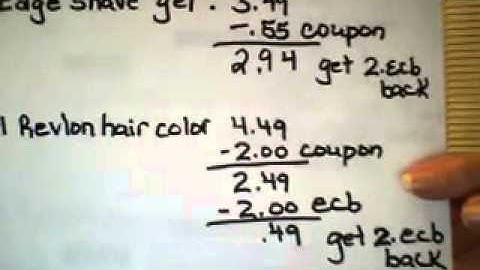 Edge shave gel. 3.49
-.55 coupon
2.94 get 2.ecb
back
1 Revlon hair color 4.49
-2.00 coupon
2.49
-2.00 ecb
.49 get 2.ecb
back